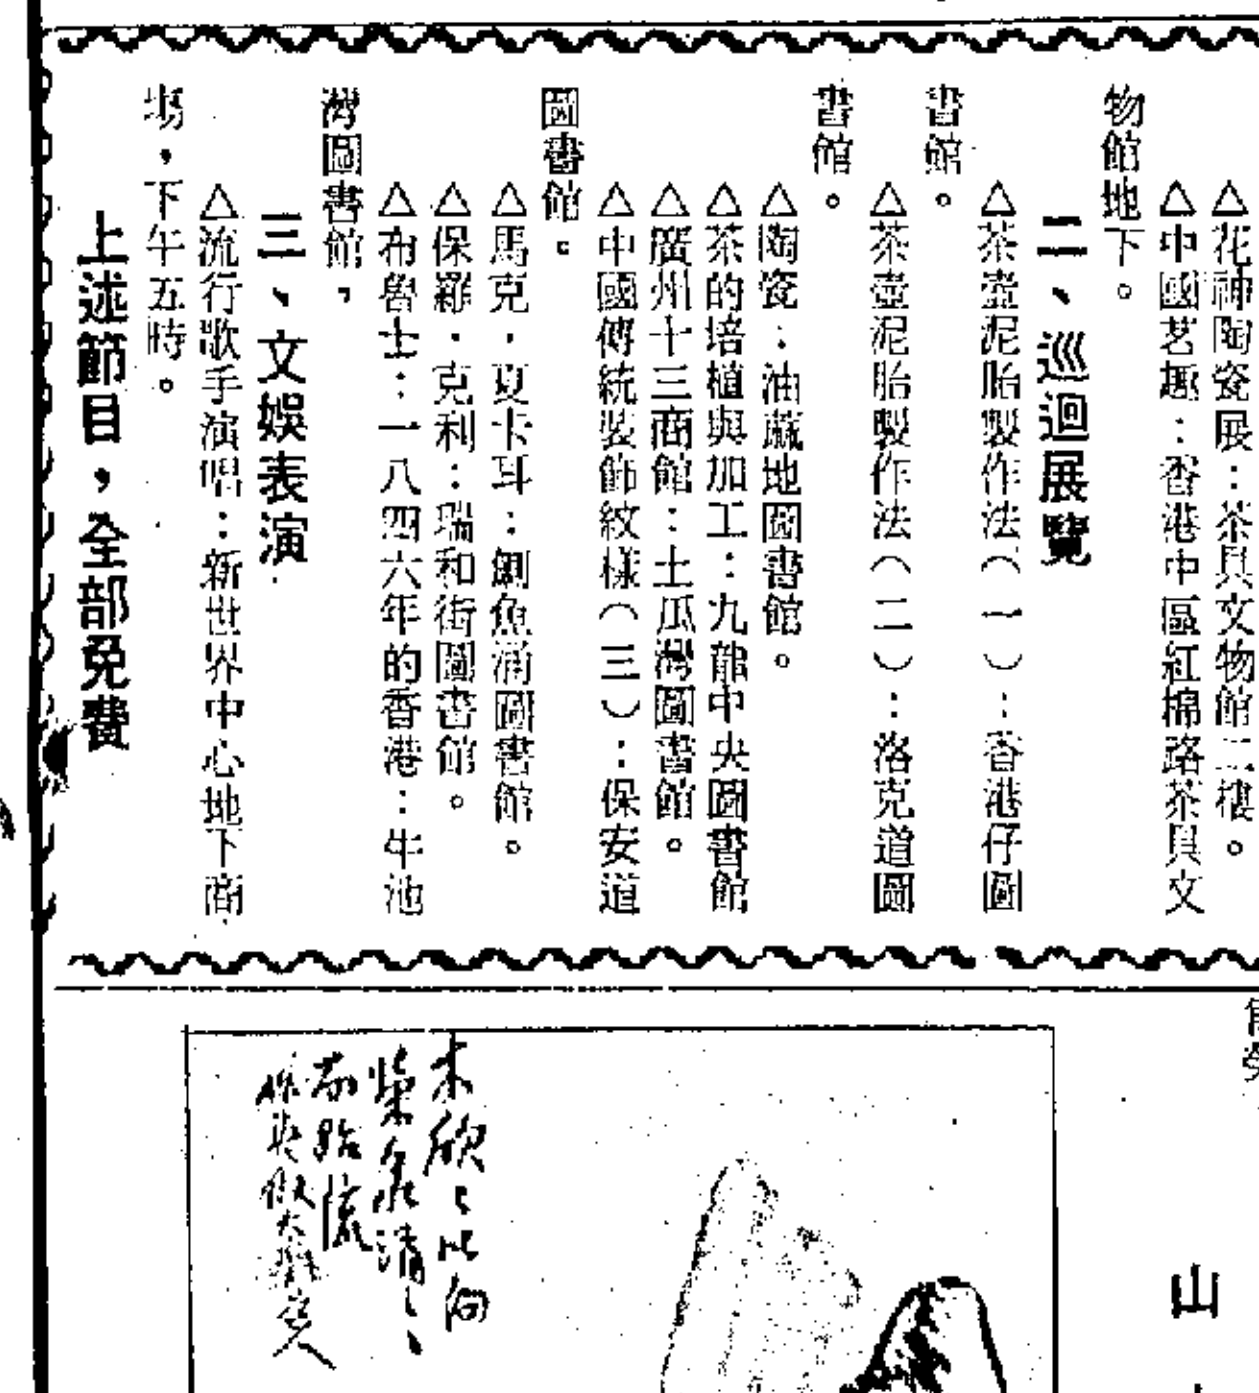 △花神陶瓷展：茶具文物館二樓。
△中國茗趣：香港中區紅棉路茶具文
物館地下。
二、巡迴展覽
△茶壺泥胎製作法（一）：香港仔圖
書館。
△茶壺泥胎製作法（二）：洛克道圖
書館。
△陶瓷：油蔴地圖書館。
△茶的培植與加工：九龍中央圖書館
△廣州十三商館：土瓜灣圖書館。
△中國傳統裝飾紋樣（三）：保安道
圖書館。
△馬克．夏卡耳：鰂魚涌圖書館。
△保羅．克利：瑞和街圖書館。
△布魯士：一八四六年的香港：牛池
灣圖書館，
三、文娛表演
△流行歌手演唱：新世界中心地下商
場，下午五時。
上述節目，全部免費
山
木欣欣以向
榮泉涓涓
而始流